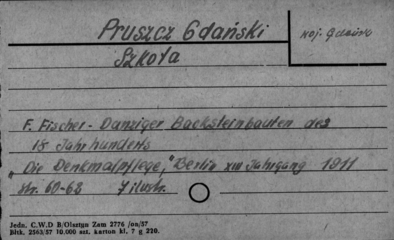 Pruszcz Gdański
woj. Gdańsk
Szkoła
F. Fischer - Danziger Backsteinbauten des
18 Jahrhunderts
„Die Denkmalpflege," Berlin XIII Jahrgang 1911
str. 60-63 7 ilustr.
Jedn. C.W.D B/Olsztyn Zam 2776 /on/57
Bltk. 2563/57 70.000 szt. karton kl. 7 g 220.